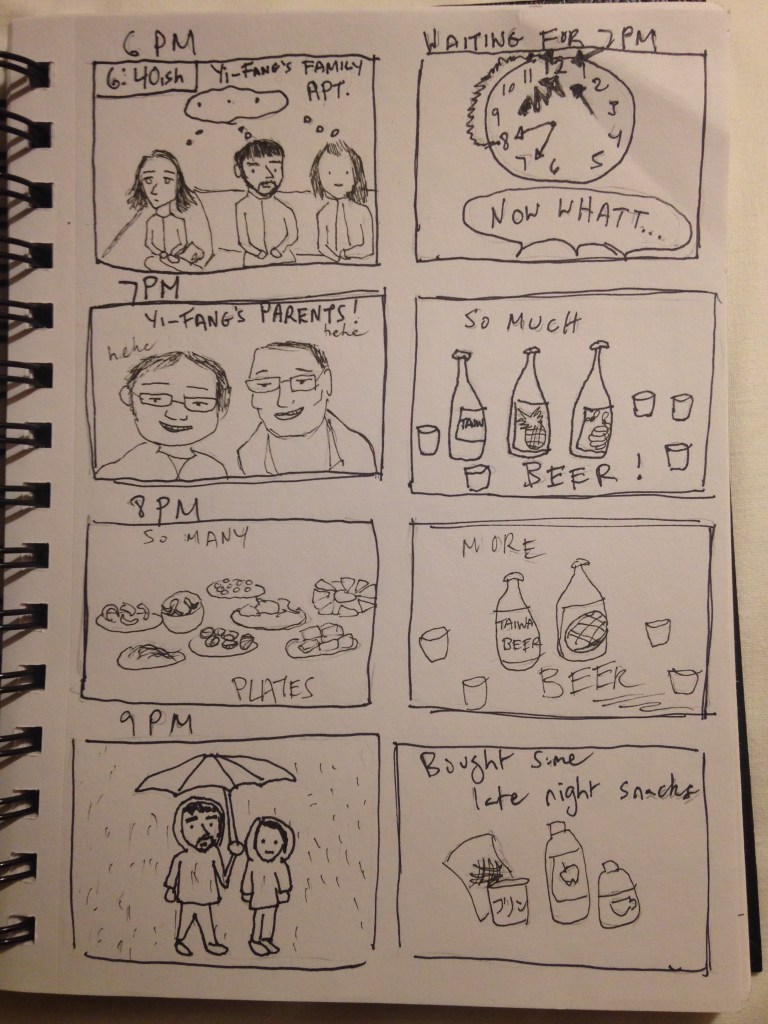 6 PM
6:40ish
YI-FANG'S FAMILY
APT.
. . .
WAITING FOR 7 PM
12
1
2
3
4
5
6
7
8
9
10
11
NOW WHATT...
7PM
YI-FANG'S PARENTS!
hehe
hehe
SO MUCH
TAIW
BEER!
8 PM
SO MANY
PLATES
MORE
TAIWA
BEER
BEER
9 PM
Bought some
late night snacks
プリン